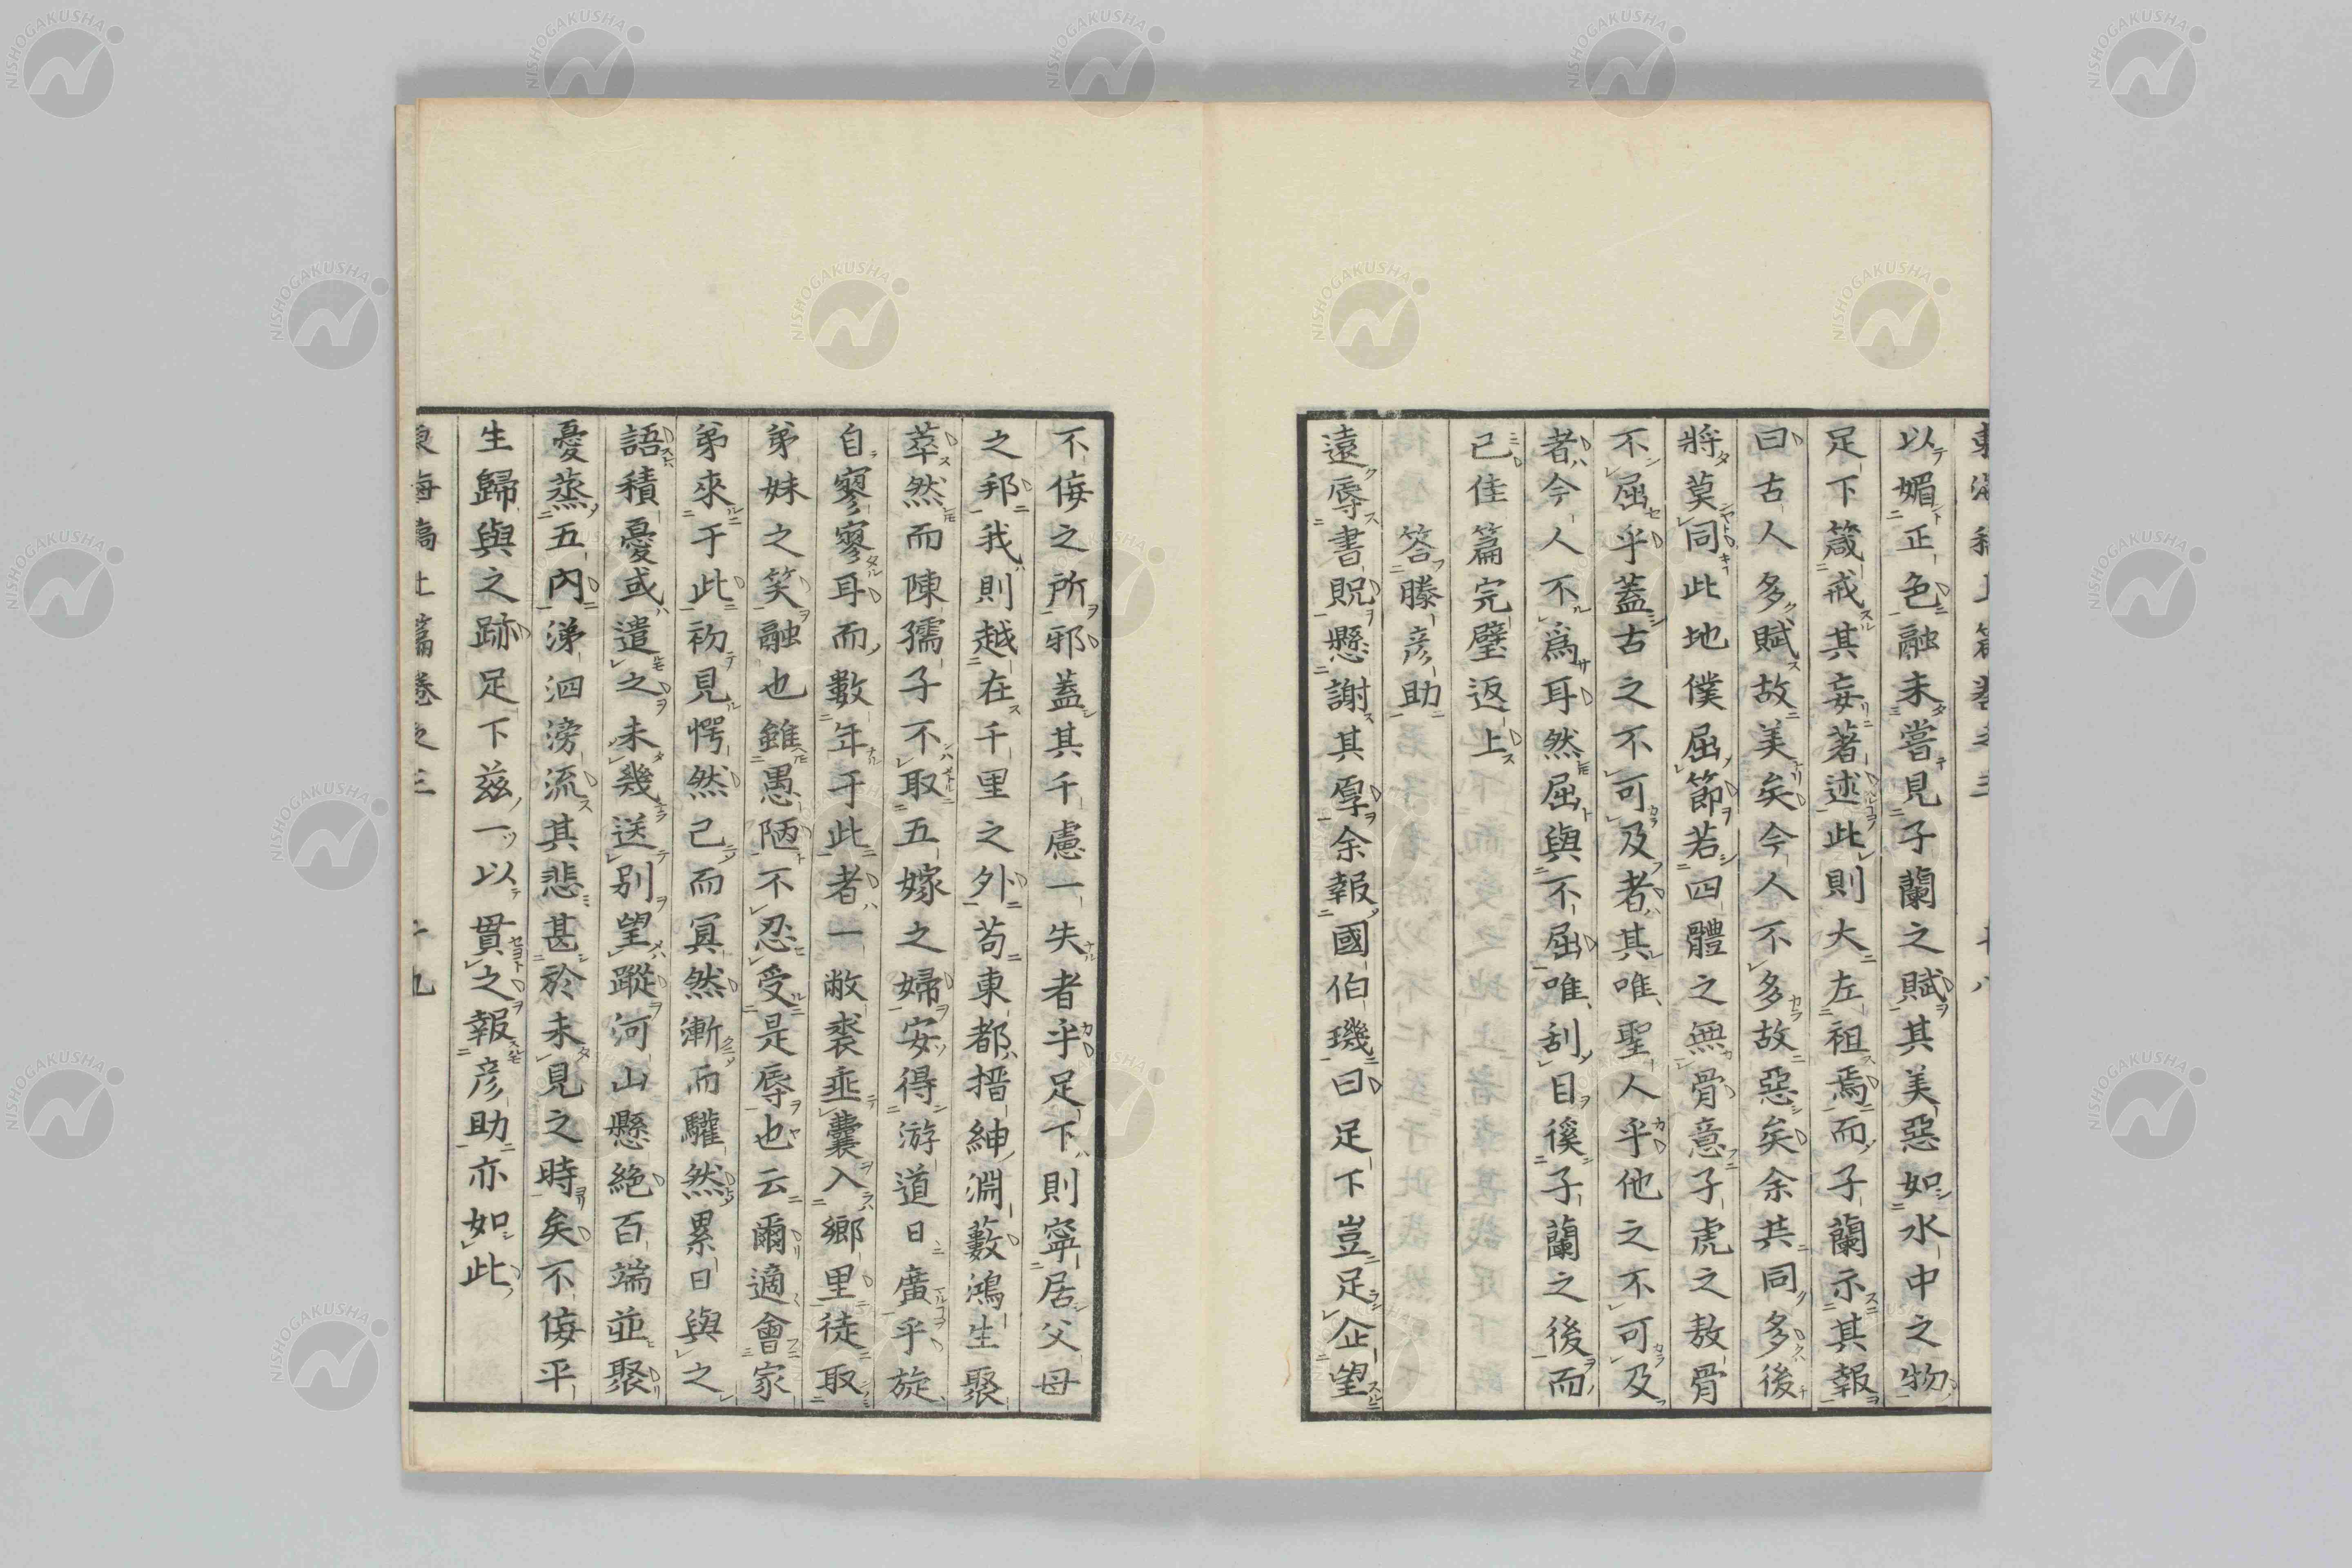 以媚正色融未嘗見子蘭之賦其美惡如水中之物
足下箴戒其妄著述此則大左袒焉而子蘭示其報
曰古人多賦故美矣今人不多故惡矣余共同多後
將莫同此地僕屈節若四體之無骨意子虎之敖骨
不屈乎蓋古之不可及者其唯聖人乎他之不可及
者今人不爲耳然屈與不屈唯刮目徯子蘭之後而
已佳篇完璧返上
答滕彦助
遠辱書貺懸謝其厚余報國伯璣曰足下豈足企望
不侮之所邪蓋其千慮一失者乎足下則寧居父母
之邦我則越在千里之外苟東都搢紳淵藪鴻生聚
萃然而陳孺子不取五嫁之婦安得游道日廣乎旋
自寥寥耳而數年于此者一敝裘垂囊入鄉里徒取
弟妹之笑融也雖愚陋不忍受是辱也云爾適會家
弟來于此初見愕然已而冥然漸而驩然累日與之
語積憂或遣之未幾送別望蹤河山懸絕百端並聚
憂蒸五內涕泗滂流其悲甚於未見之時矣不侮平
生歸與之跡足下茲一以貫之報彦助亦如此
東海稿上篇卷之三 十九
NISHOGAKUSHA